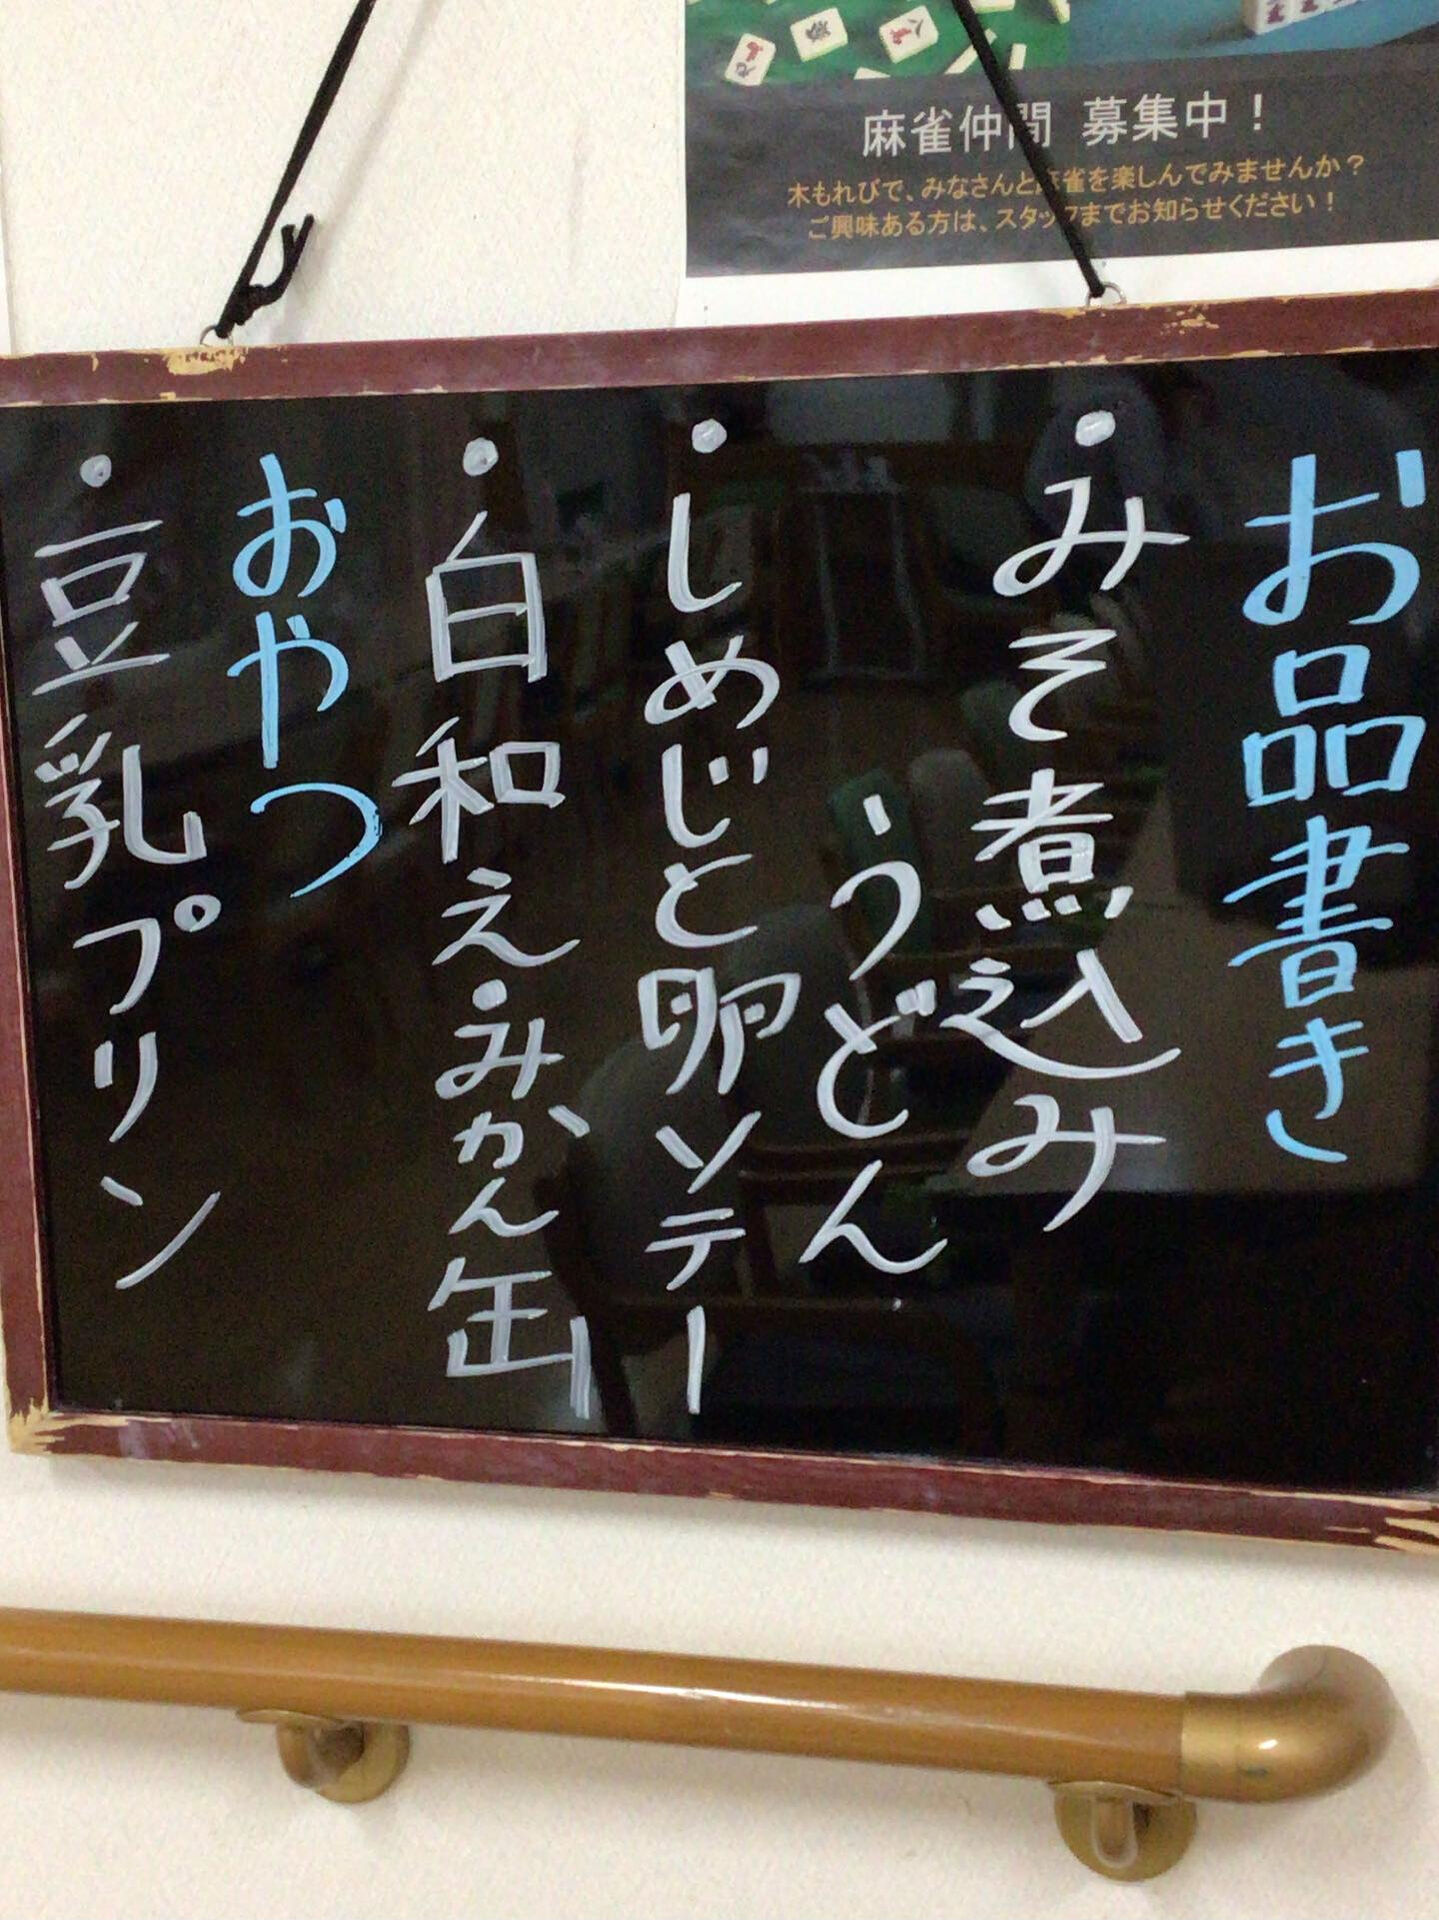 麻雀仲間 募集中！
木もれびで、みなさんと麻雀を楽しんでみませんか？
ご興味ある方は、スタッフまでお知らせください！
お品書き
・みそ煮込み
うどん
・しめじと卵ソテー
・白和え・みかん缶
おやつ
・豆乳プリン